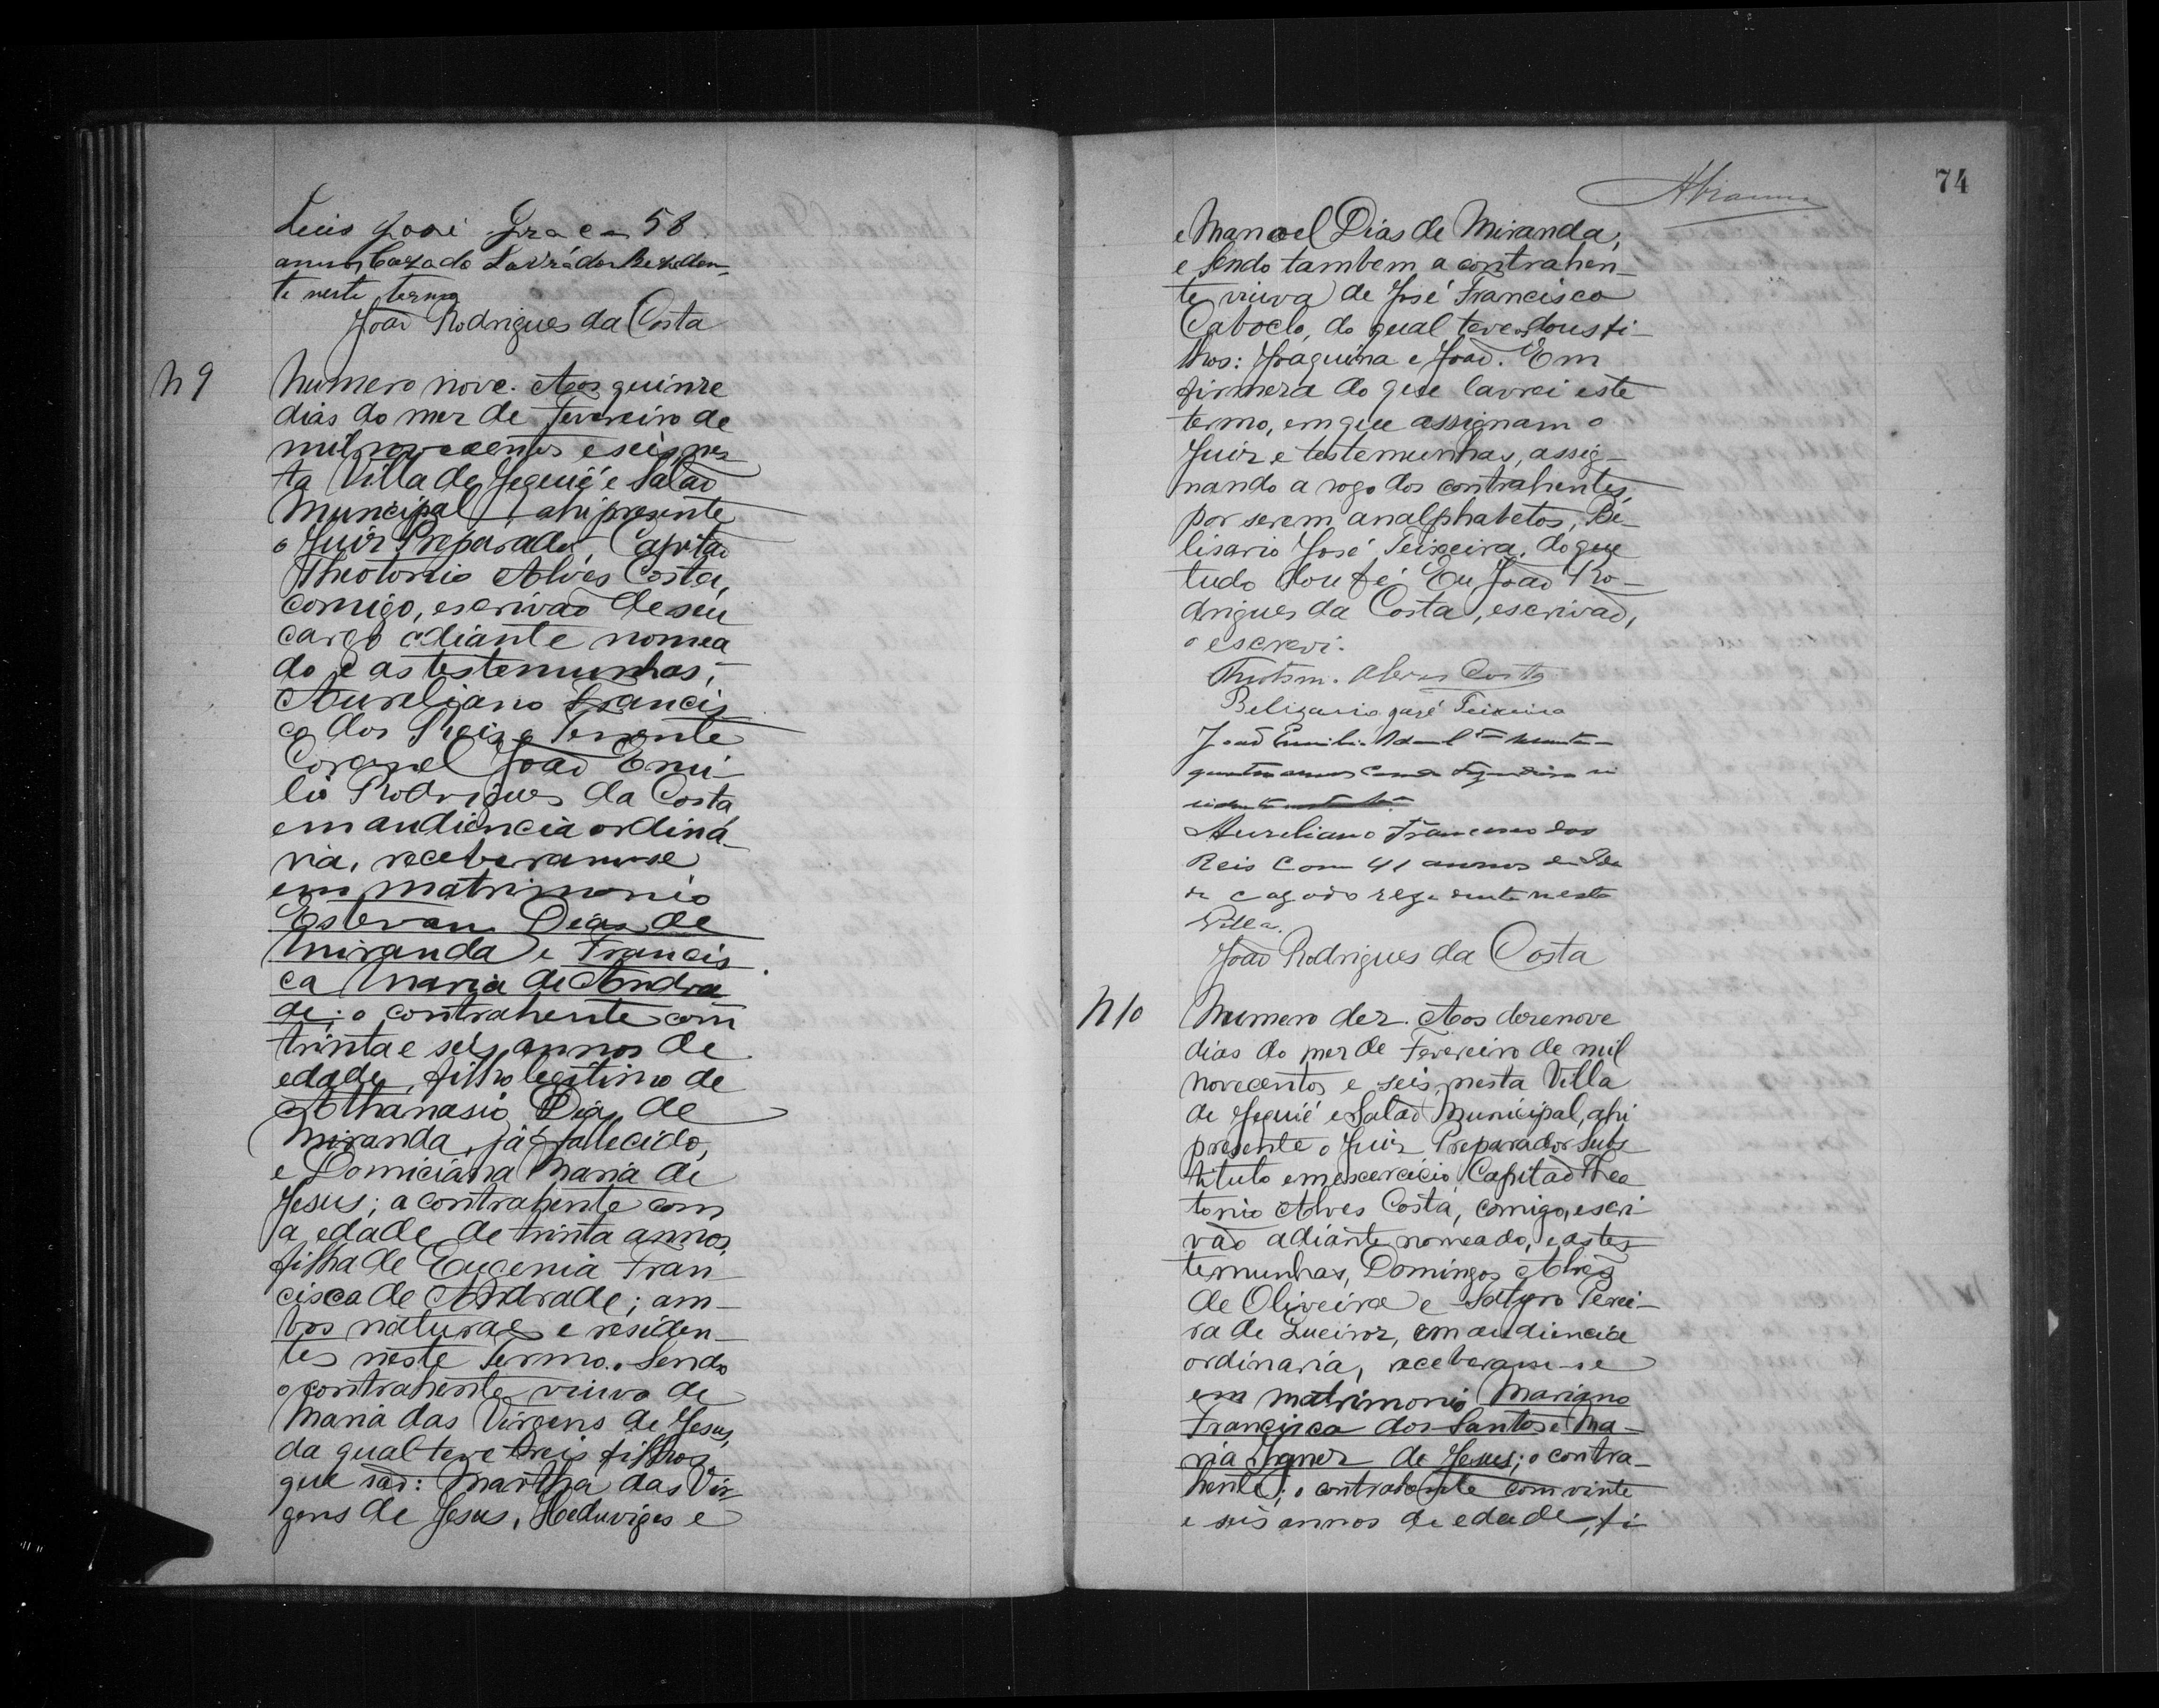 Luis José Graça 58
annos Cazado Lavrador Rezeden-
te neste termo
João Rodrigues da Costa
N 9
Numero nove. Aos quinze
dias do mez de Fevereiro de
mil novecentos e seis, nes
ta Villa de Jequié e Salão
Municipal, ahi presente
o Juiz Preparador, Capitão
Theotonio Alves Costa,
comigo, escrivão de seu
cargo adiante nomea
do e as testemunhas,
Aureliano Francis
co dos Reis e Tenente
Coronel João Emi-
lio Rodrigues da Costa
em audiencia ordiná-
ria, receberam-se
em matrimonio
Estevam Dias de
Miranda e Francis
ca Maria de Andra
de; o contrahente com
trinta e seis annos de
edade, filho legitimo de
Athanasio Dias de
Miranda, já falecido,
e Domiciana Maria de
Jesus; a contrahente com
a edade de trinta annos,
filha de Eugenia Fran
cisca de Andrade; am-
bos naturaes e residen-
tes neste Termo. Sendo
o contrahente viuvo de
Maria das Virgens de Jesus,
da qual teve treis filhos,
que são: Martha das Vir
gens de Jesus, Heduviges e
74
e Manoel Dias de Miranda,
e sendo tambem a contrahen-
te viuva de José Francisco
Caboclo, do qual teve dous fi-
lhos: Joaquina e João. Em
firmeza do que lavrei este
termo, em que assignam o
Juiz e testemunhas, assig-
nando a rogo dos contrahentes,
por serem analphabetos, Be-
lisario José Teixeira, do que
tudo dou fé. Eu João Ro-
drigues da Costa, escrivão,
o escrevi.
Theotm. Alves Costa
Beligario José Teixeira
João Emilio
annos
Aureliano Francisco dos
Reis Com 41 annos de Ida
de cazado rezedente nesta
Villa.
João Rodrigues da Costa
N 10
Numero dez. Aos dezenove
dias do mez de Fevereiro de mil
novecentos e seis, nesta Villa
de Jequié e Salão Municipal, ahi
presente o Juiz Preparador Subs
tituto em exercicio, Capitão Theo
tonio Alves Costa, comigo, escri-
vão adiante nomeado, e as tes
temunhas, Domingos Alves
de Oliveira e Satyro Perei-
ra de Queiroz, em audiencia
ordinaria, receberam-se
em matrimonio Mariano
Francisco dos Santos e Ma-
ria Ignez de Jesus; o contra-
hente; o contrahente com vinte
e seis annos de edade, fi